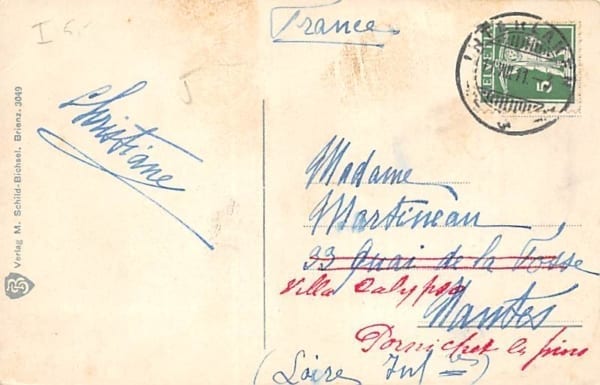 I
France
HELVETIA
5
Christiane
Verlag M. Schild-Bichsel, Brienz. 3049
Madame
Martineau
33 Quai de la Fosse
Villa Calypso
Nantes
Pornichet les pins
(Loire Inf